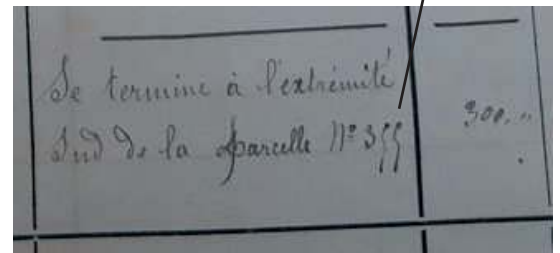 Se termine à l'extrémité
Sud de la parcelle Nº 355
300. "